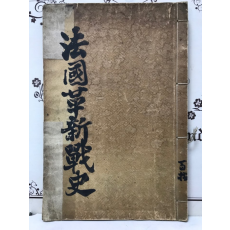 法國革新戰史